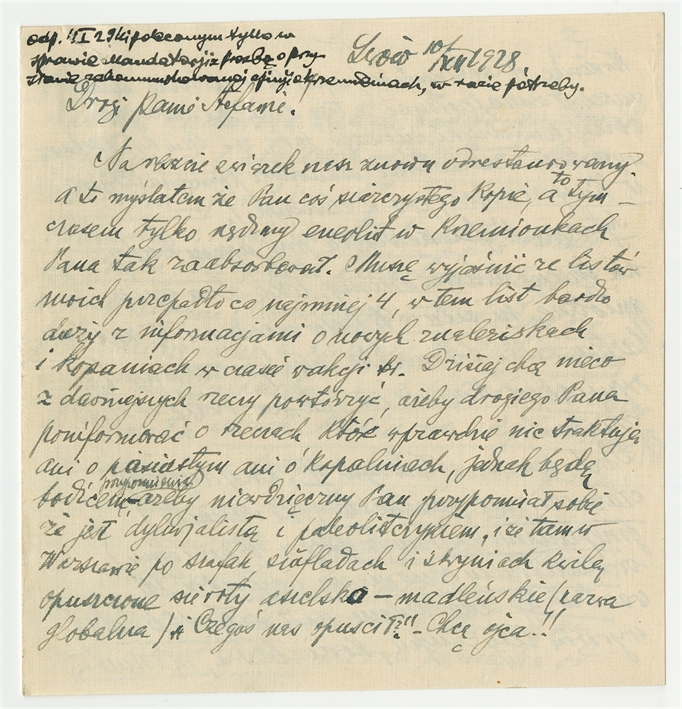 odp. 4 I 29 ki poleconym tylko w
sprawie Mandatacji z prośbą o przy
słanie zakomunikowanej opinji o Krzemionkach, w razie potrzeby.
Lwów 10/XII 1928.
Drogi Panie Stefanie!
Nareszcie związek nasz znowu odrestaurowany.
a to myślałem że Pan coś siarczystego kopie, a to tym-
czasem tylko nędzny eneolit w Krzemionkach
Pana tak zaabsorbował. Muszę wyjaśnić że listów
moich przepadło co najmniej 4, w tem list bardzo
duży z informacjami o nowych znaleziskach
i kopaniach w czasie wakcji br. Dzisiaj chcę nieco
z dawniejszych rzeczy powtórzyć, ażeby drogiego Pana
poinformować o rzeczach które wprawdzie nic traktują
ani o pasiastym ani o kopalniach, jednak będą
bodźcem przypomnienia ażeby niewdzięczny Pan przypomniał sobie
że jest dyluwjalistą i paleolitczykiem, i że tam w
Warszawie po szafach, szufladach i skrzyniach kwilą
opuszczone sieroty aszelsko - madleńskie (nazwa
globalna) „Czegoś nas opuścił?!" - Chcę ojca!!